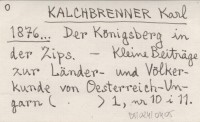 KALCHBRENNER Karl
1876... Der Königsberg in
der Zips. — Kleine Beiträge
zur Länder- und Völker-
kunde von Oesterreich-Un-
garn ( . ) 1, nr 10 i 11.